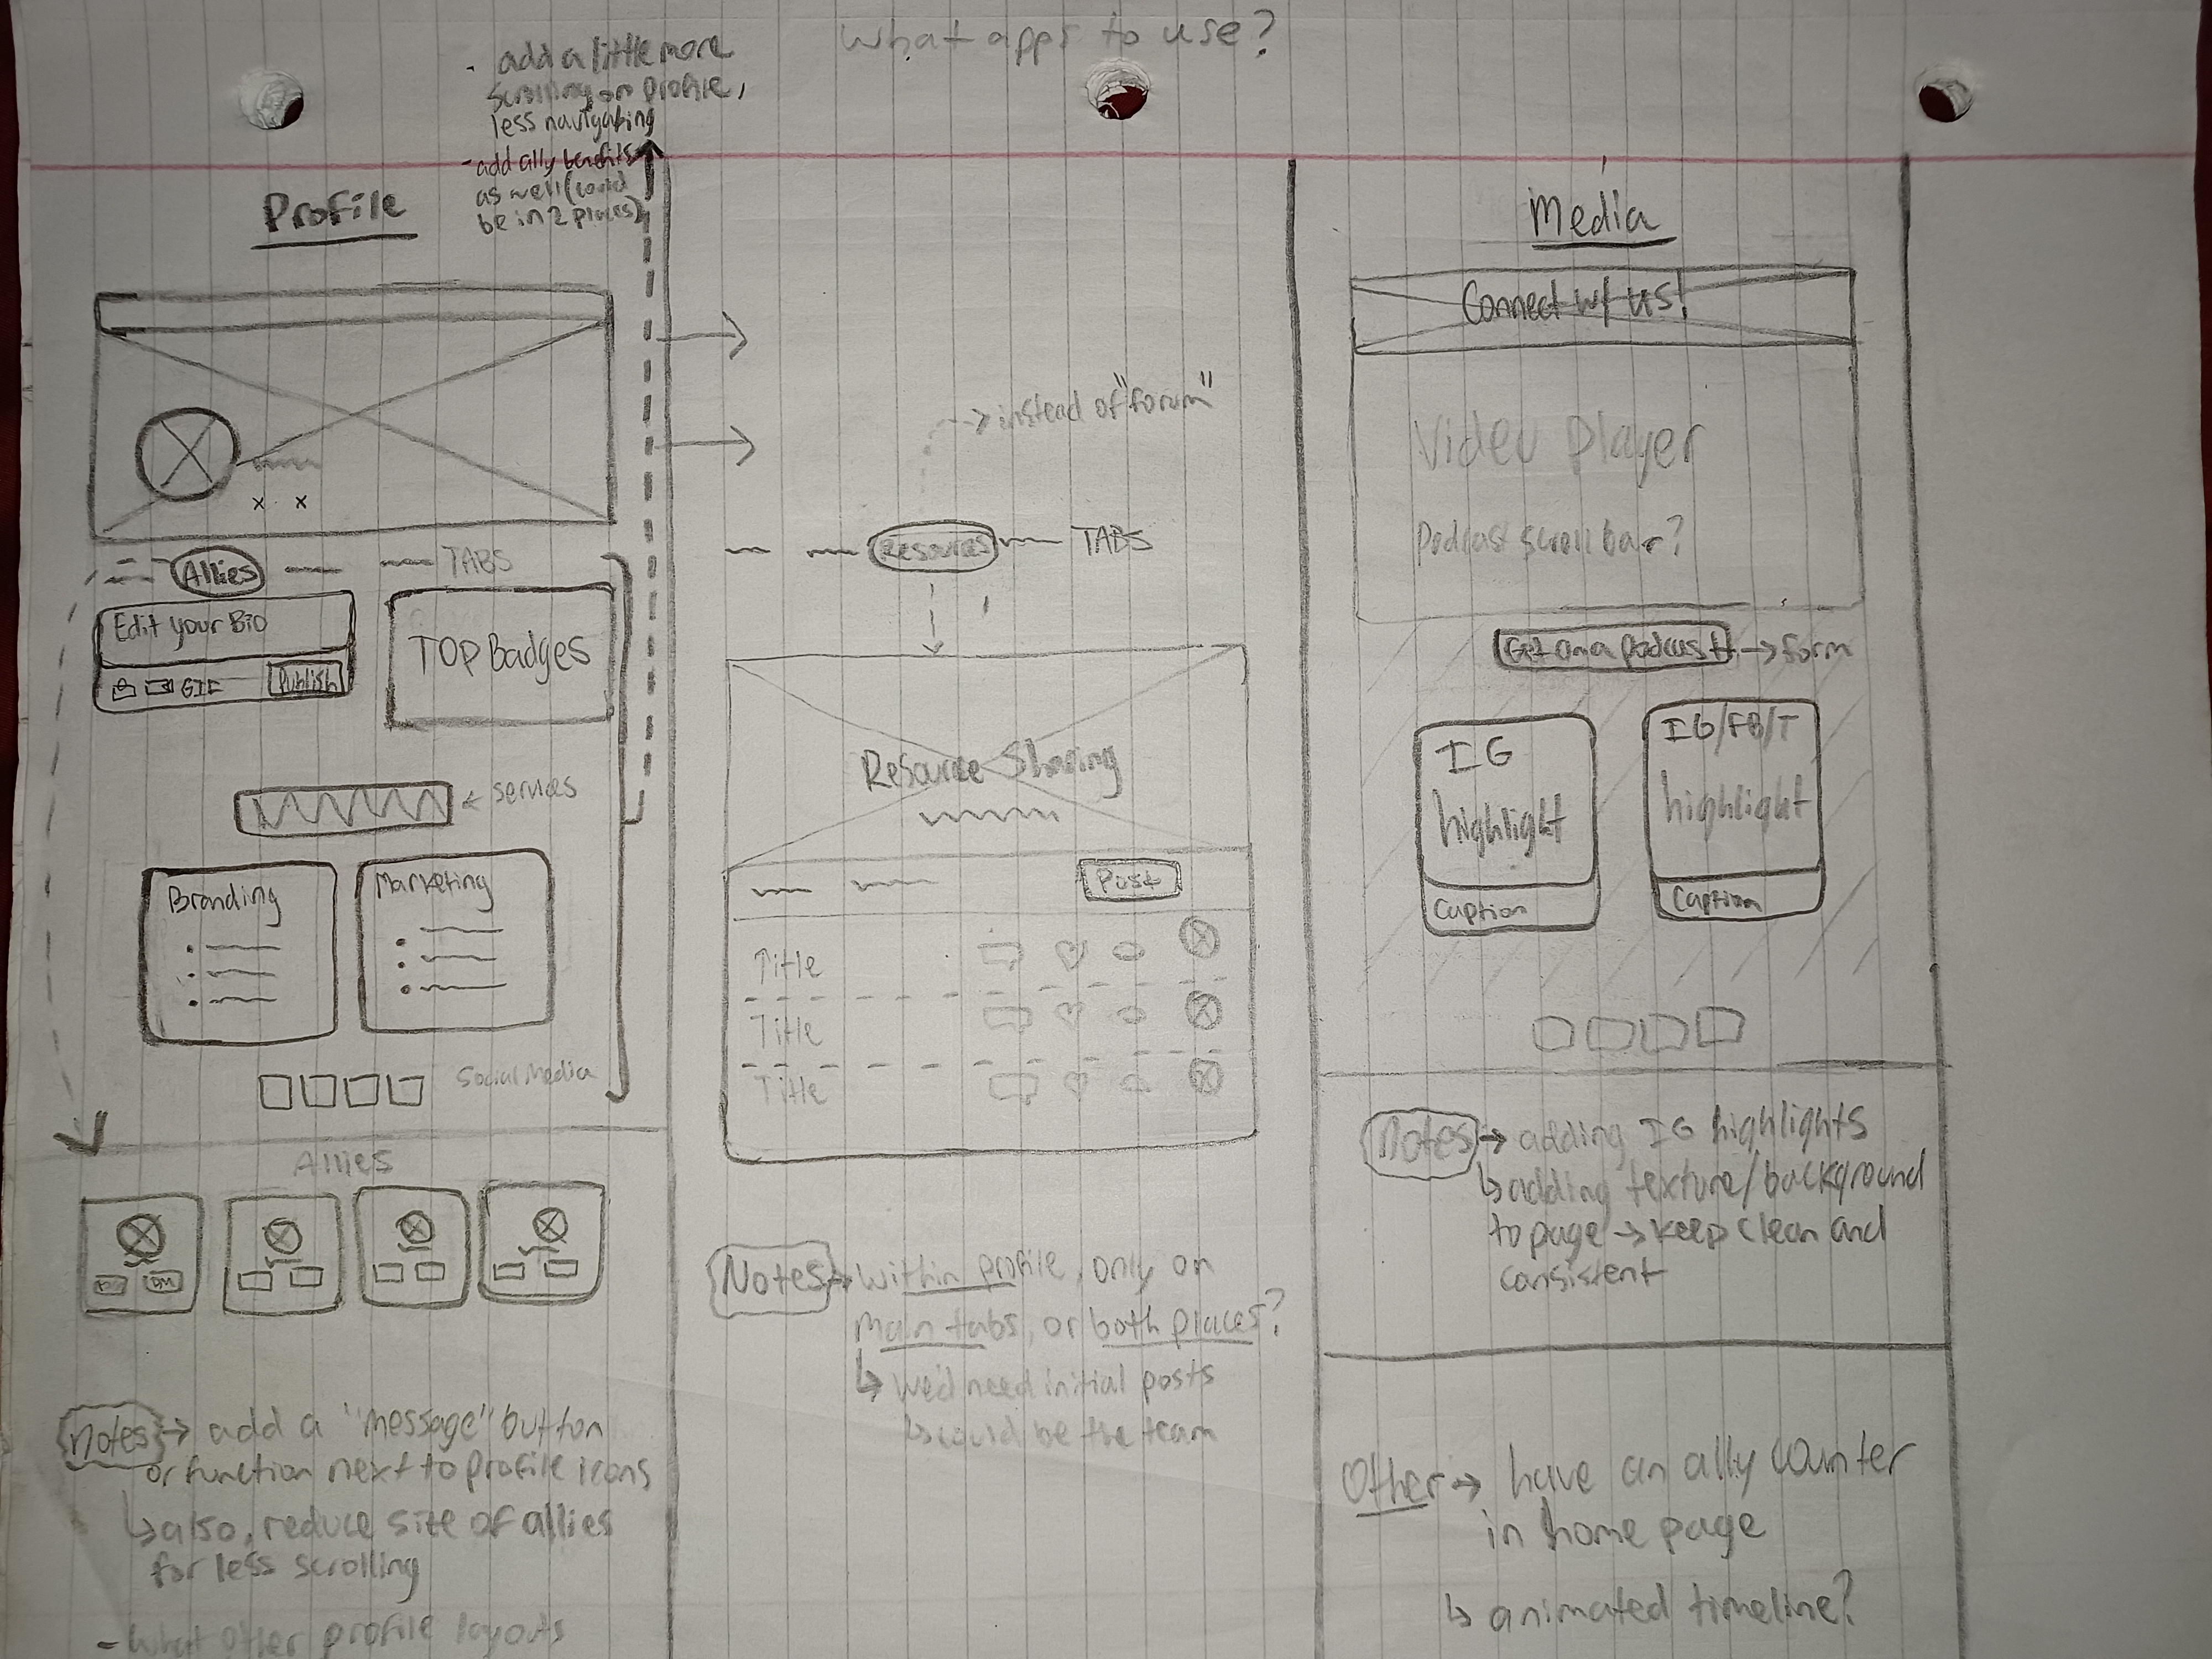 What apps to use?
- add a little more
scrolling on profile,
less navigating
- add ally benefits
as well (could
be in 2 places)
Profile
Allies
TABS
Edit your Bio
GIF
Publish
TOP Badges
services
Branding
Marketing
Social Media
Allies
DM
Notes → add a "message" button
or function next to profile icons
↳ also, reduce size of allies
for less scrolling
- what other profile layouts
instead of "forum"
Resources
TABS
Resource Sharing
Post
Title
Title
Title
Notes → within profile, only on
main tabs, or both places?
↳ we'd need initial posts
↳ could be the team
Media
Connect w/ us!
Video Player
Podcast scroll bar?
Get on a podcast → form
IG
highlight
Caption
IG/FB/T
highlight
Caption
Notes → adding IG highlights
↳ adding texture/background
to page → keep clean and
consistent
Other → have an ally counter
in home page
↳ animated timeline?